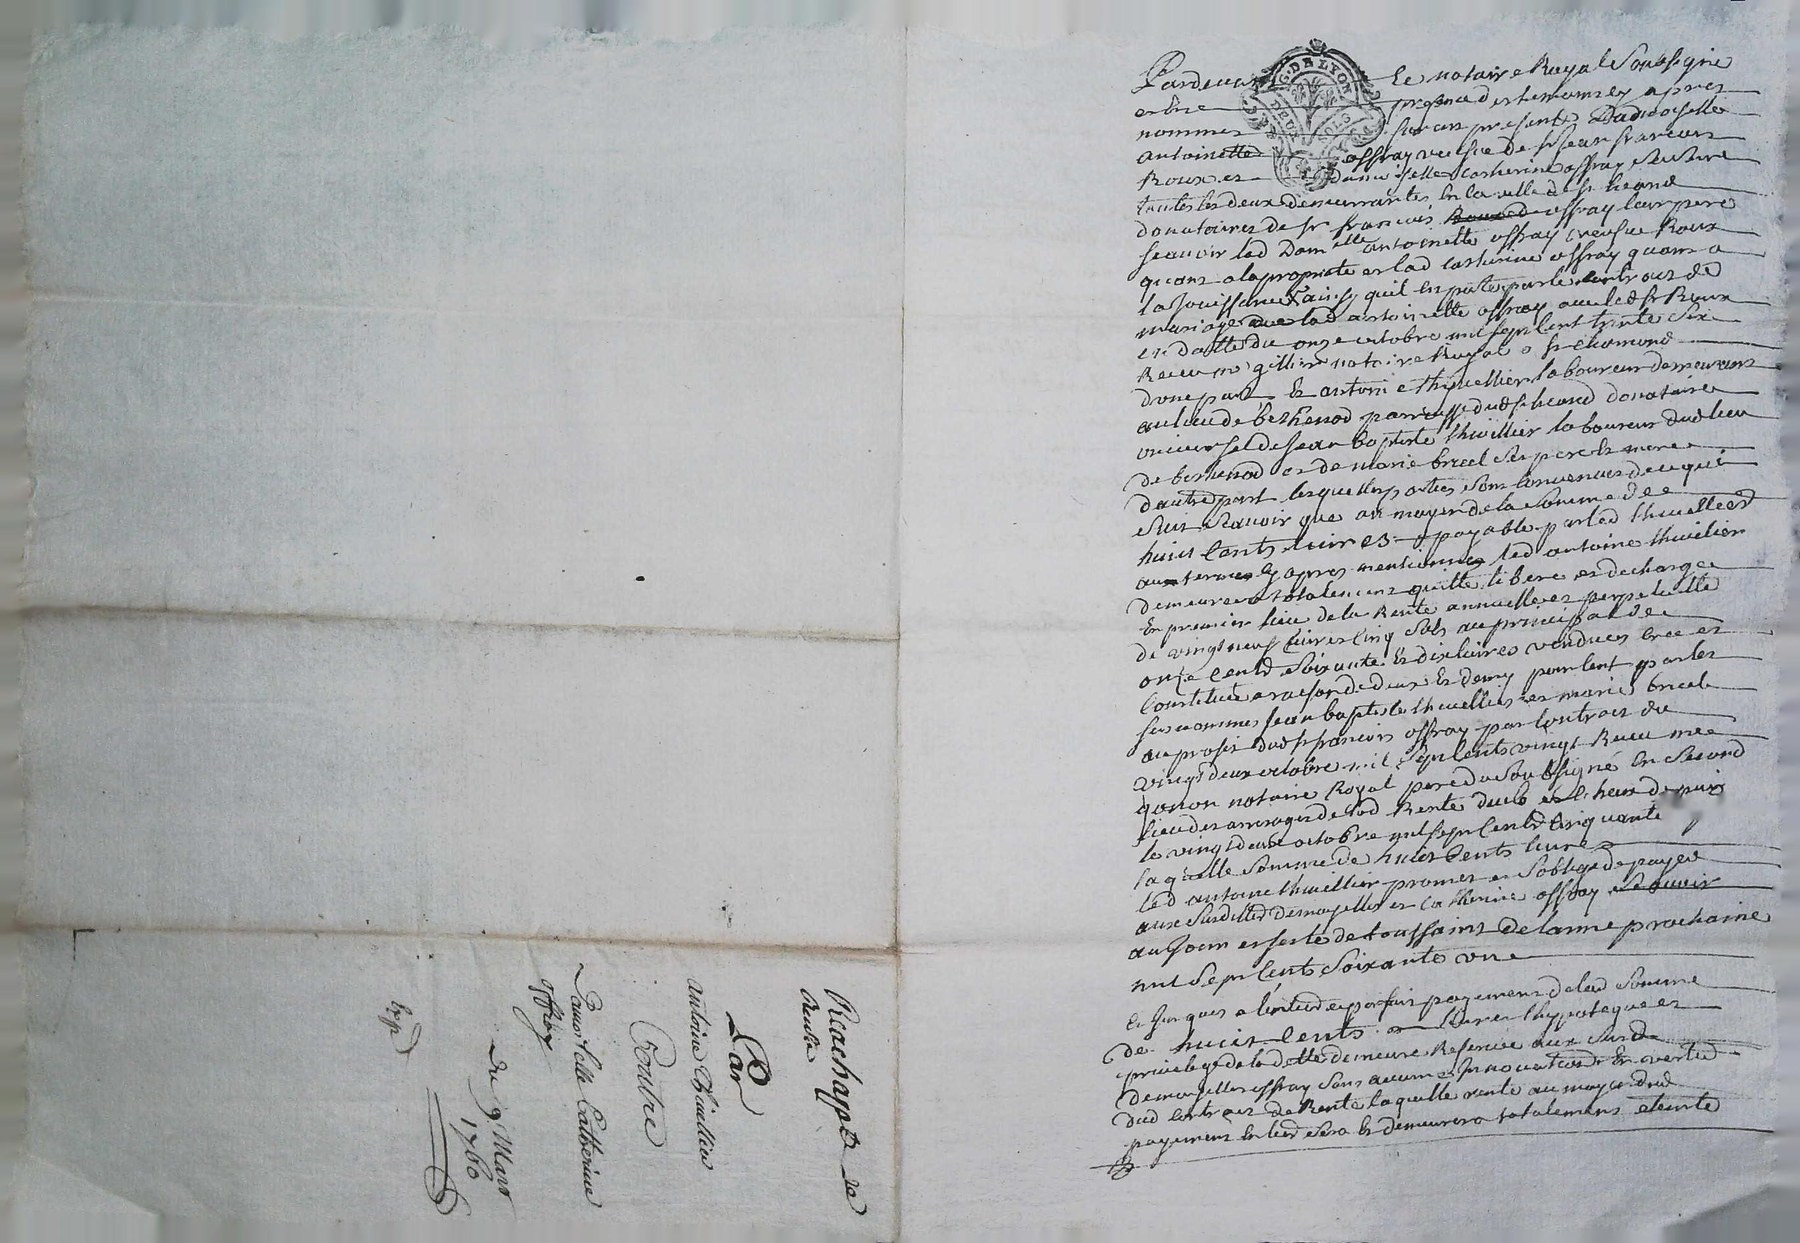 Pardevant le notaire Royal Soubsigné
et en presence des temoins cy apres
nommes furent presents Dadmoiselle
antoinette offray veufve de Sr Jean francois
Roux et Damoiselle Catherine offray sa
toutes les deux demeurantes en la ville de St heand
donatoires de Sr francois offray leur pere
scavoir lad Damlle antoinette offray veufve Roux
quant a la proprieté et lad Catherine offray quant a
la Jouissance ainsy quil en par le contrat de
mariage de lad antoinette offray avec led Sr Roux
en datte du onze octobre mil sept cent trente six
Receu me gillier notaire Royal a St chamond
d'une part Et antoine thivellier laboureur demeurant
au lieu de bethenod parroisse dud St heand donataire
universel de Jean baptiste thivillier laboureur dud lieu
de bethenod et de marie breel ses pere et mere
d'autre part lesquelles parties sont convenues de ce qui
suit scavoir que au moyen de la somme de
huit cents livres payable par led thivellier
aux termes cy apres mentionnes led antoine thivilier
demeurera totalement quitte libere et decharge
En premier lieu de la Rente annuelle et perpetuelle
de vingt neuf livres cinq sols au principal de
onze cents soixante et dix livres vendue cree et
Constituée a raison de deux et demy pour cent par les
sus nommes Jean baptiste thivellier et marie breel
au profit dud Sr francois offray par contrat du
vingt deux octobre mil sept cents vingt Receu me
gonon notaire Royal pere du soubsigné En second
lieu des arrerages de lad Rente dues et echeux depuis
le vingt deux octobre mil sept cents cinquante
laquelle somme de huit cents livres
led antoine thivellier promet et s'oblige de payer
aux susdittes demoiselles et Catherine offray scavoir
au Jour et feste de toussaint de lanne prochaine
mil sept cents soixante une
et Jusques a l'entier et parfait payement de lad somme
de huit cents livres lhypoteque et
privilege de la dette demeure Reservée aux susd
demoiselles offray sans aucune Innovation Et en vertu
dud contrat de Rente laquelle rente au moyen dud
payement sera et demeurera totalement eteinte
Reachapt de
Rente
Par
antoine Thivellier
Contre
Damoiselle Catherine
offray
du 9 Mars
1760
Exp
G. DE LYON
DEUX SOLS